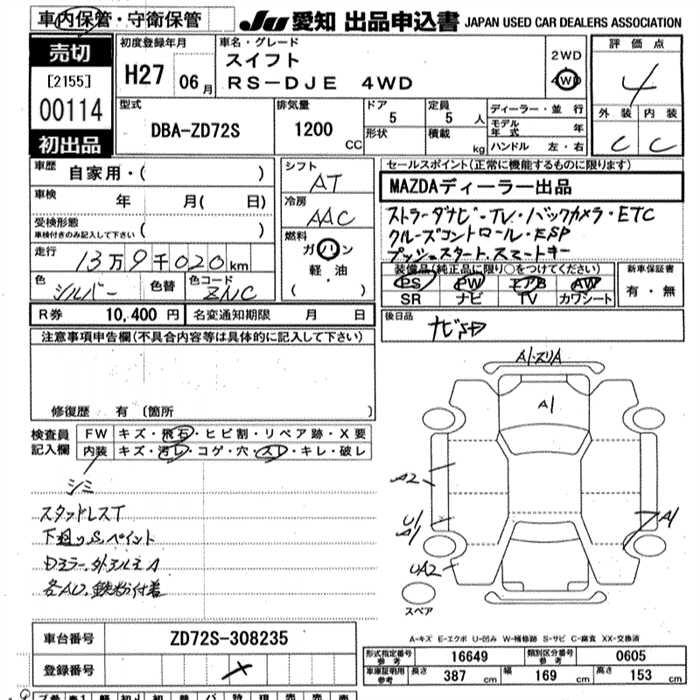 車内保管・守衛保管
JU 愛知 出品申込書 JAPAN USED CAR DEALERS ASSOCIATION
売切
[2155]
00114
初出品
初度登録年月
H27 06月
車名・グレード
スイフト
RS-DJE 4WD
2WD
4WD
評価点
4
外装 内装
C C
型式
DBA-ZD72S
排気量
1200 CC
ドア
5
形状
定員
5 人
積載
kg
ディーラー・並行
モデル年式 年
ハンドル 左・右
車歴
自家用・( )
車検
年 月( 日)
受検形態
車検付きのみ記入して下さい ( )
走行
13万9千020km
色
シルバー
色替
色コード
ZNC
シフト
AT
冷房
AAC
燃料
ガソリン
軽・油
( ・ )
セールスポイント(正常に機能するものに限ります)
MAZDAディーラー出品
ストラーダナビ・TV・バックカメラ・ETC
クルーズコントロール・ESP
プッシュスタート・スマートキー
装備品(純正品に限り○をつけてください)
PS PW エアB AW
SR ナビ TV カワシート
新車保証書
有・無
R券 10,400 円 名変通知期限 月 日
後日品
ナビSD
注意事項申告欄(不具合内容等は具体的に記入して下さい)
修復歴 有 〔箇所 〕
検査員記入欄
FW キズ・飛石・ヒビ割・リペア跡・X要
内装 キズ・汚レ・コゲ・穴・スレ・キレ・破レ
シミ
スタッドレスT
下廻りS、ペイント
Dミラー、外アルミA
各AU、鉄粉付着
A1・スリA
A1
A2
U1
A1
A1
UA2
スペア
A-キズ E-エクボ U-凹み W-補修跡 S-サビ C-腐食 XX-交換済
車台番号 ZD72S-308235
登録番号
形式指定番号 参考 16649
類別区分番号 参考 0605
車庫証明用 参考 長さ 387 cm 幅 169 cm 高さ 153 cm